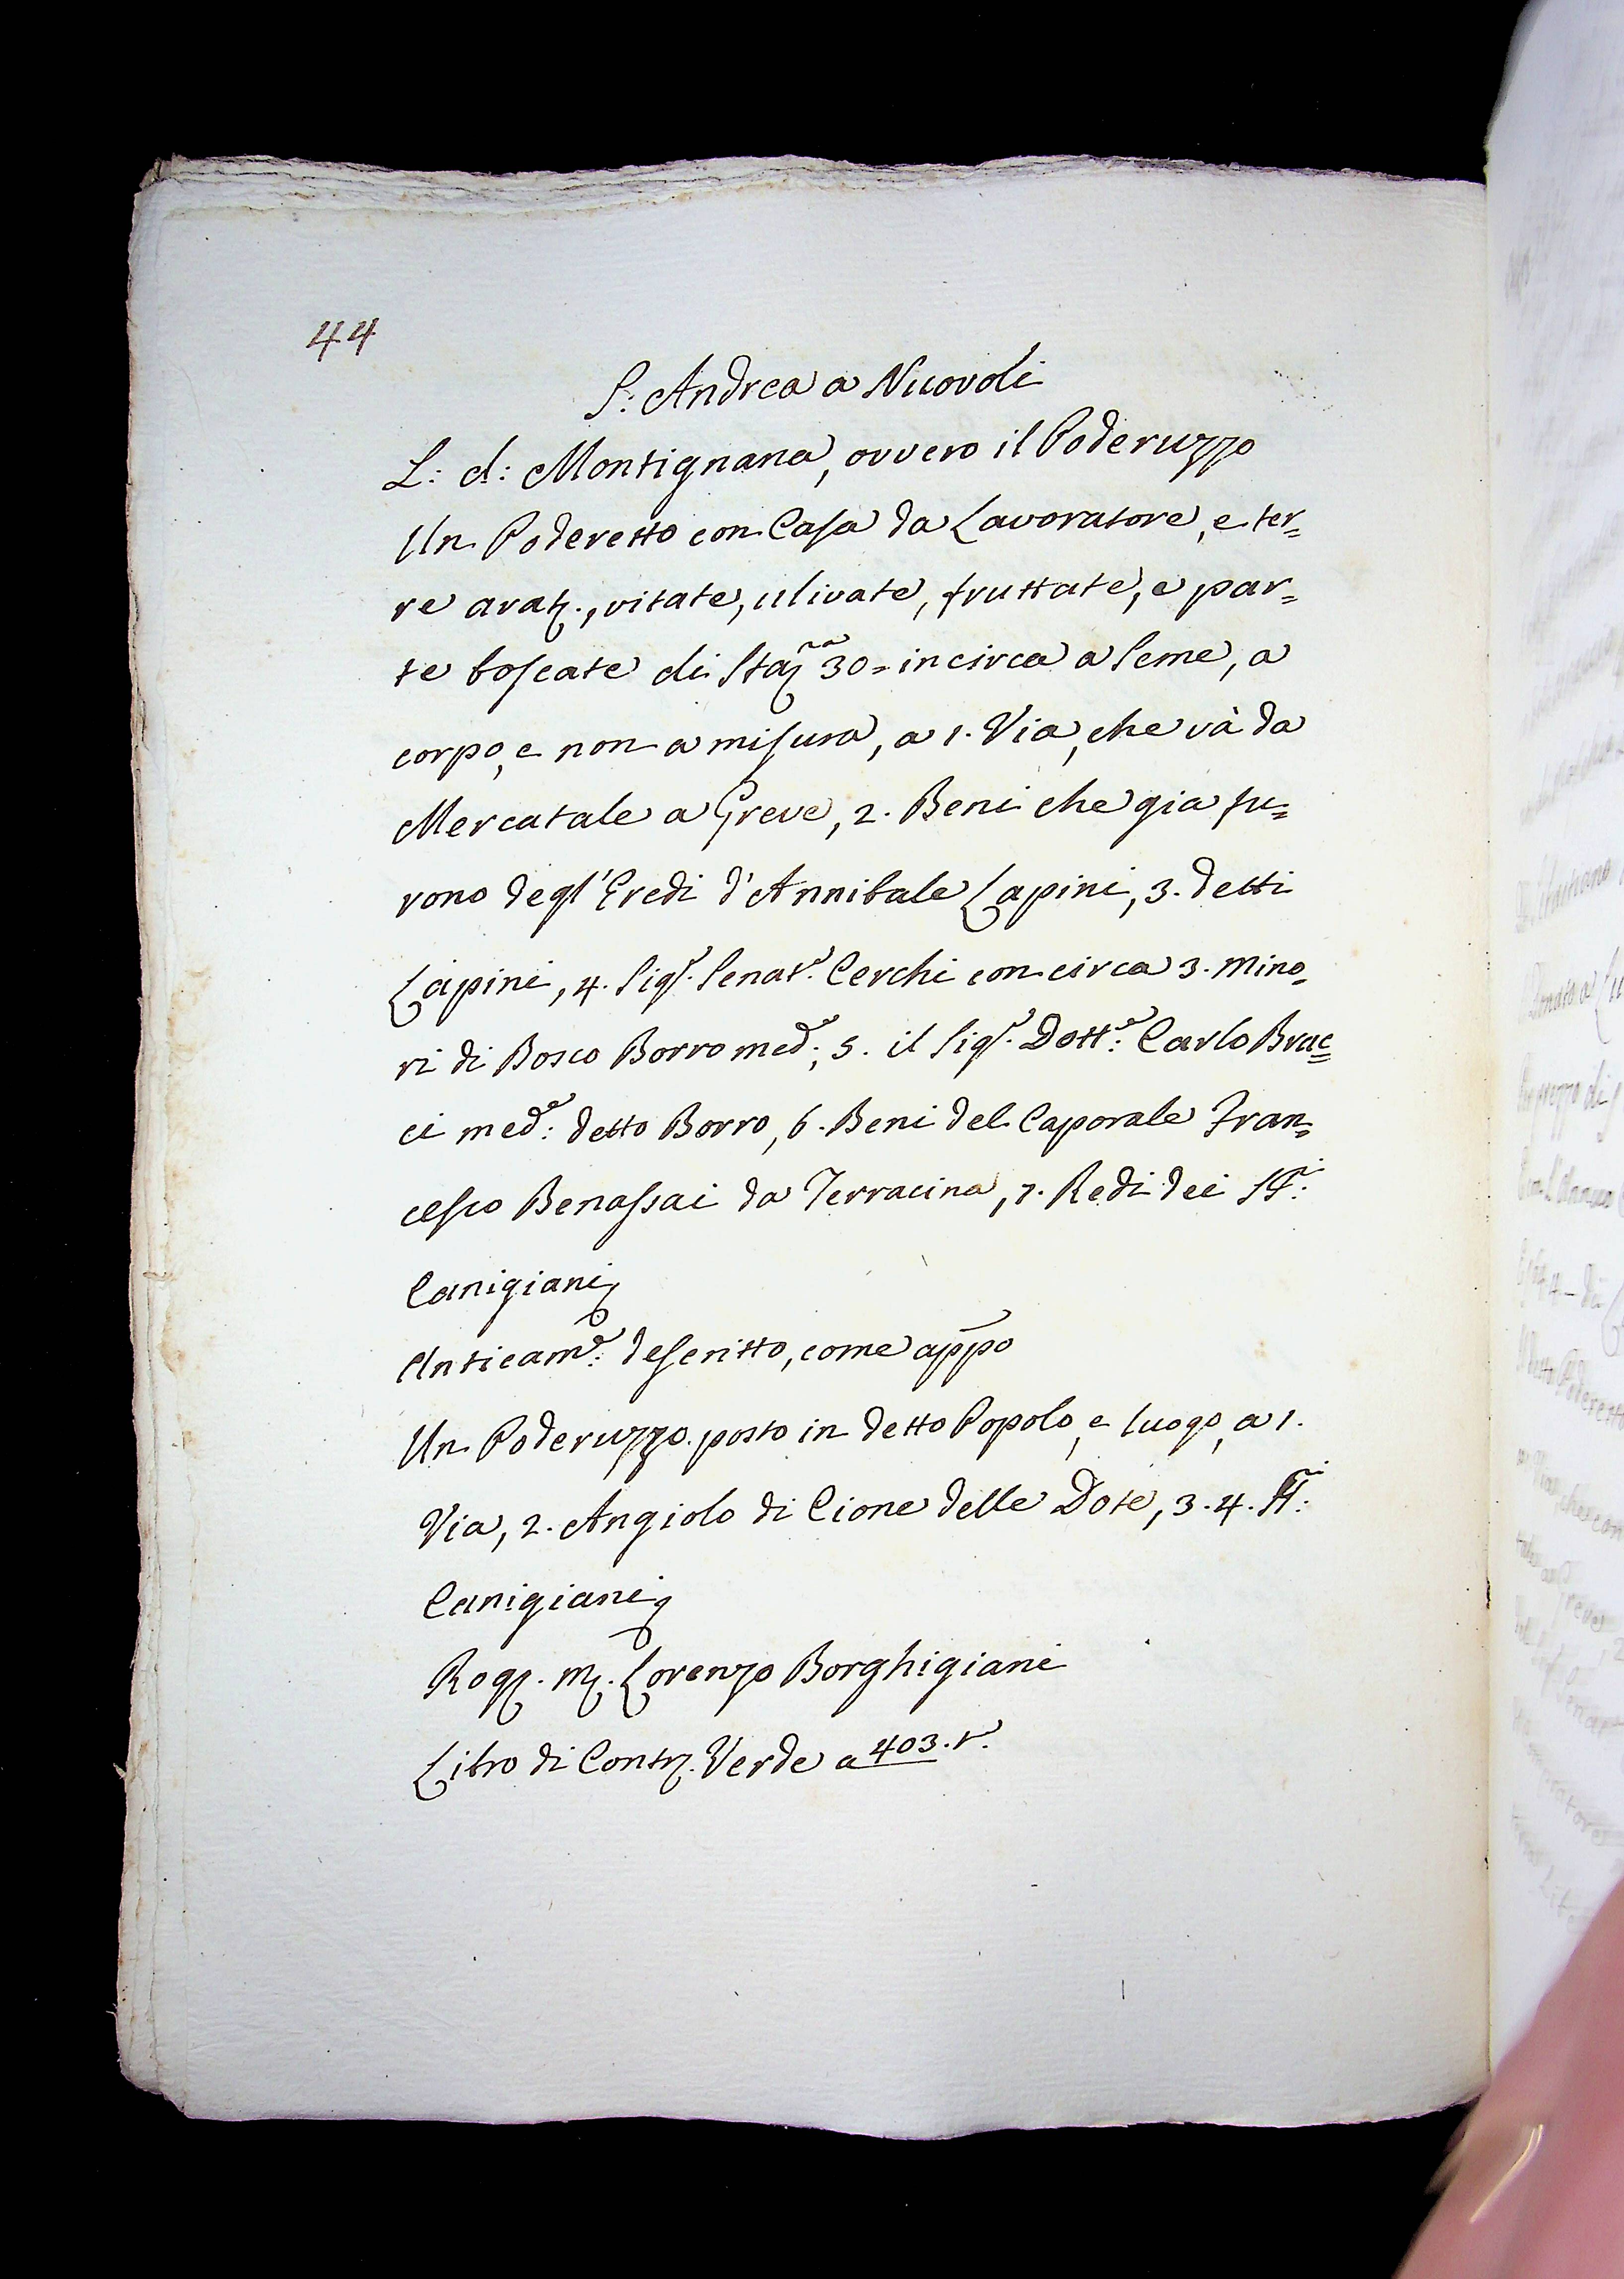 44
S: Andrea a Nuovoli
L: d: Montignana, ovvero il Poderuzzo
Un Poderetto con Casa da Lavoratore, e ter=
re arat., vitate, ulivate, fruttate, e par=
te boscate di Staia 30= incirca a Seme, a
corpo, e non a misura, a 1. Via, che và da
Mercatale a Greve, 2. Beni che gia fu=
rono degl'Eredi d'Annibale Lapini, 3. detti
Lapini, 4. Sigr. Senatre. Cerchi con circa 3. Mino=
ri di Bosco Borro medе:, 5. il Sigr. Dotte: Carlo Brac=
ci mede: detto Borro, 6. Beni del Caporale Fran=
cesco Benassai da Terracina, 7. Redi dei SSri:
Canigiani
Anticame: descritto, come appo
Un Poderuzzo posto in detto Popolo, e luogo, a 1.
Via, 2. Angiolo di Cione delle Dote, 3. 4.
Canigiani
Rog. m. Lorenzo Borghigiani
Libro di Contr. Verde a 403. t.